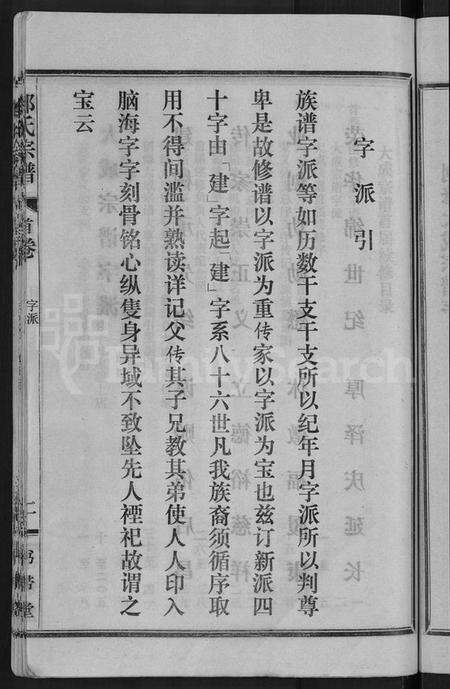 字派引
族谱字派等如历数干支干支所以纪年月字派所以判尊
卑是故修谱以字派为重传家以字派为宝也兹订新派四
十字由「建」字起「建」字系八十六世凡我族裔须循序取
用不得间滥并熟读详记父传其子兄教其弟使人人印入
脑海字字刻骨铭心纵隻身异域不致坠先人禋祀故谓之
宝云
氏宗谱
首卷
字派
FamilySearch